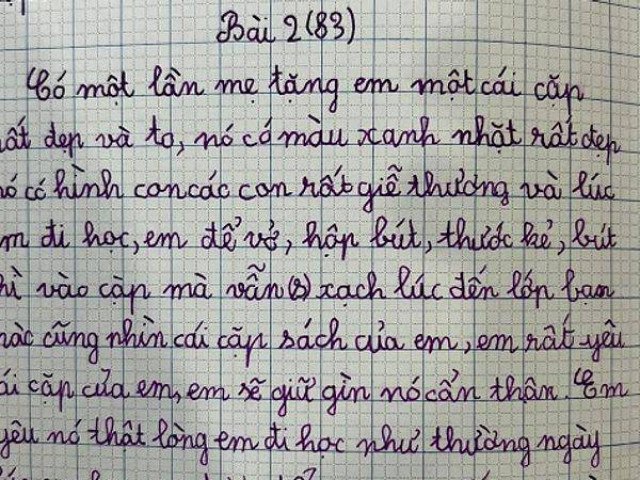 Bài 2 (83)
Có một lần mẹ tặng em một cái cặp
rất đẹp và to, nó có màu xanh nhạt rất đẹp
nó có hình con các con rất giễ thương và lúc
em đi học, em để vở, hộp bút, thước kẻ, bút
chì vào cặp mà vẫn (s) xạch lúc đến lớp bạn
nào cũng nhìn cái cặp sách của em, em rất yêu
cái cặp của em, em sẽ giữ gìn nó cẩn thận. Em
yêu nó thật lòng em đi học như thường ngày